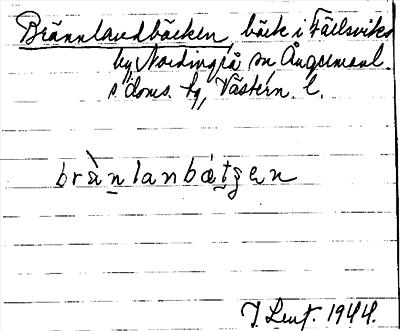 Brännlandbäcken, bäck i Fällsviks
by, Nordingrå sn, Ångermanl.
s. doms. hg, Västern. l.
brànlanbätgen
J. Leut. 1944.